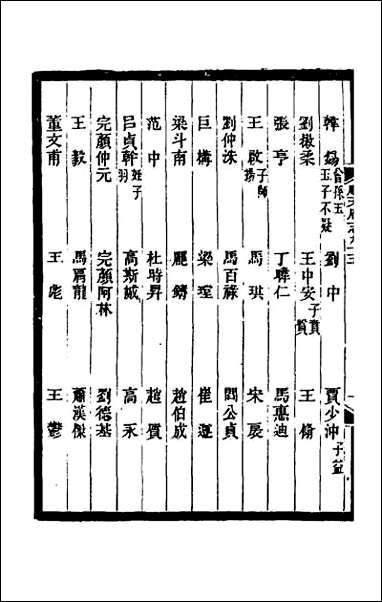 韓錫 曾孫玉 玉子不疑 劉中 賈少沖 子益
劉撒柔 王中安 子賁 賢 王脩
張亨 丁暐仁 馬惠迪
王啟 子師揚 馬琪 宋扆
劉仲洙 馬百祿 閻公貞
巨構 梁瑝 崔遵
梁斗南 龐鑄 趙伯成
范中 杜時昇 趙質
呂貞幹 姪子羽 高斯誠 高永
完顏仲元 完顏阿林 劉德基
王毅 馬肩龍 蕭漢傑
董文甫 王彪 王鬱